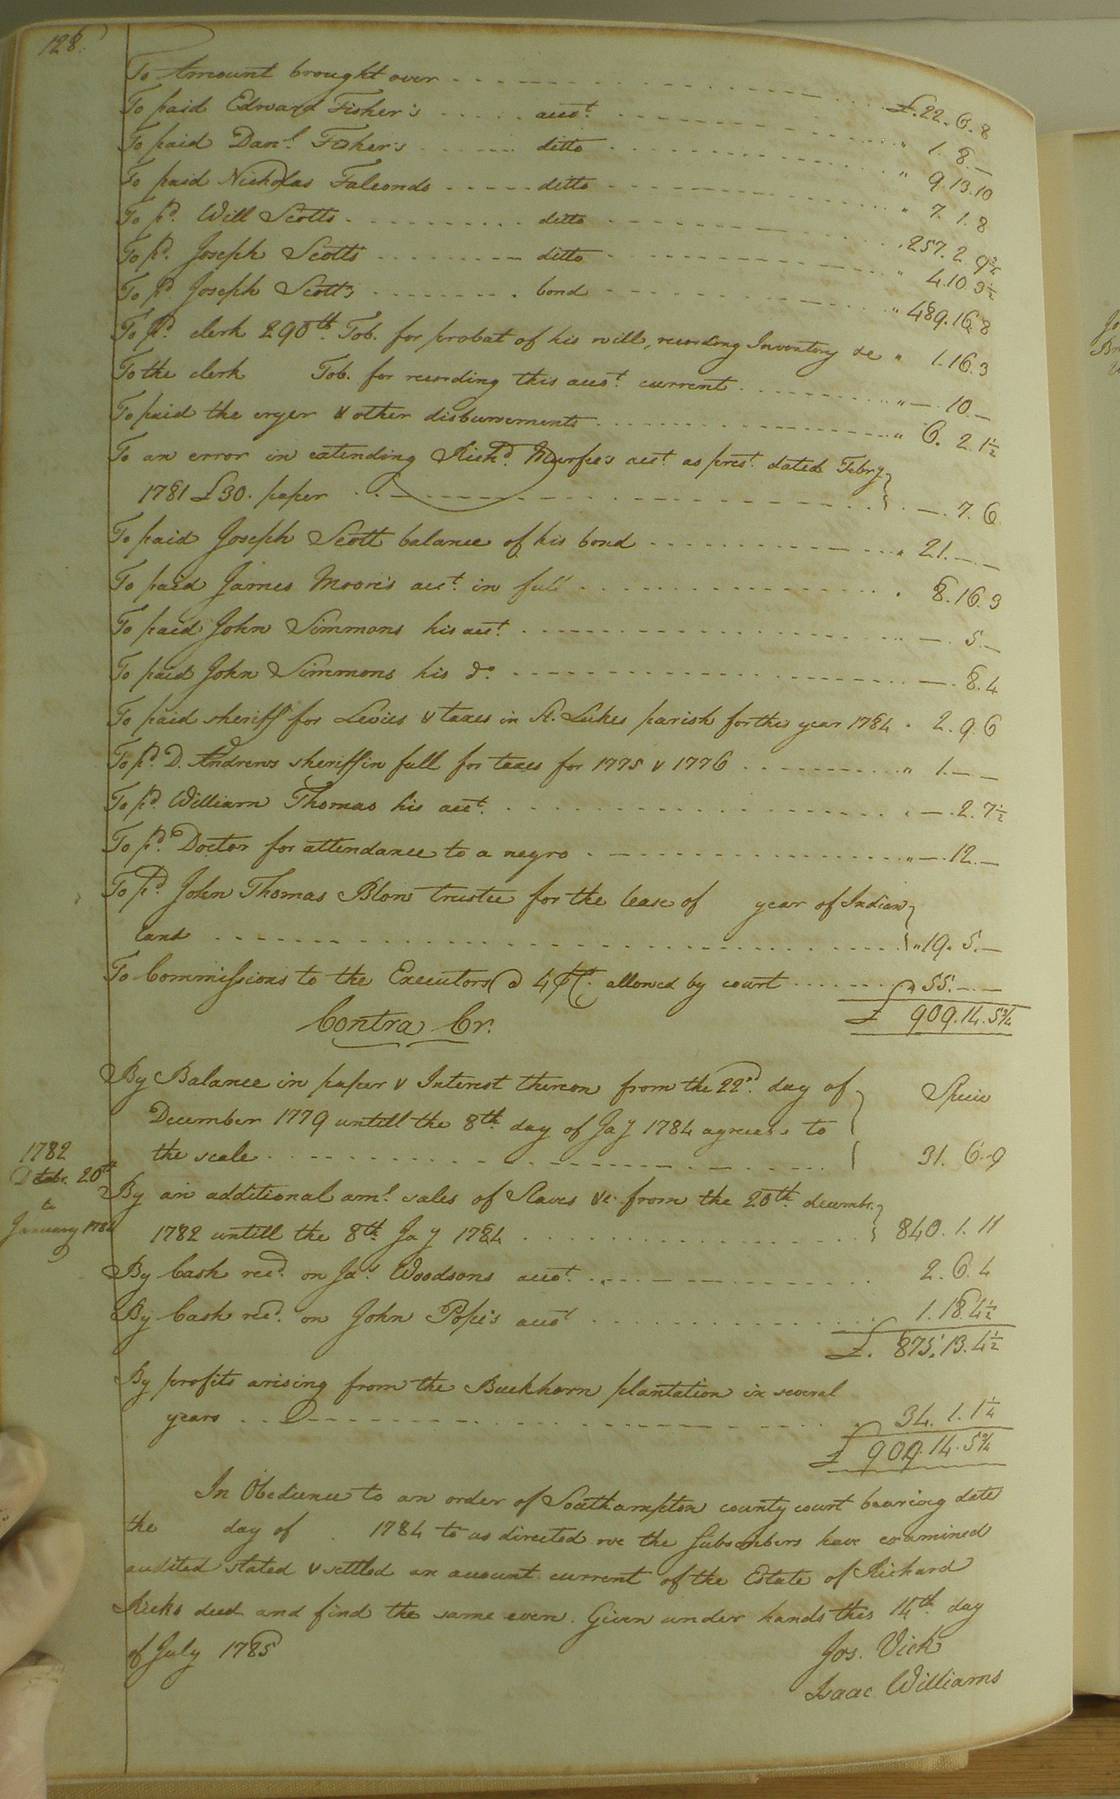 128.
To Amount brought over £.22.6.8
To paid Edward Fisher's acct. " 1.8.—
To paid Danl. Fisher's ditto " 9.13.10
To paid Nicholas Falconds ditto " 7.1.8
To pd. Will Scotts ditto 257.2.9¾
To pd. Joseph Scotts ditto " 4.10.3½
To pd. Joseph Scotts bond " 489.16.8
To pd. clerk 290th. Tob. for probat of his will, recording Inventory &c " 1.16.3
To the clerk Tob. for recording this acct. current " —.10.—
To paid the cryer & other disbursements " 6.2.1½
To an error in extending Richd. Murfee's act. as prest. dated Febry
1781 £30. paper —.7.6
To paid Joseph Scott balance of his bond " 21.—.—
To paid James Moore's act. in full " 8.16.3
To paid John Simmons his act. " —.5.—
To paid John Simmons his do. —.8.4
To paid sheriff for Levies & taxes in St. Lukes parish for the year 1784 " 2.9.6
To pd. D. Andrews sheriff in full for taxes for 1775 & 1776 " 1.—.—
To pd. William Thomas his act. " —.2.7½
To pd. Doctor for attendance to a negro " —.12.—
To pd. John Thomas Blow trustee for the lease of year of Indian
land " 19.5.—
To Commissions to the Executors @ 4 pCt. allowed by court " 55.—.—
£ 909.14.5¾
Contra Cr.
By Balance in paper & Interest thereon from the 22d. day of Specie
December 1779 untill the 8th. day of Jay 1784 agreeas to
the scale 31.6.9
1782
Decebr. 20th
to
January 1784
By an additional amt. sales of Slaves &c. from the 20th. decembr.
1782 untill the 8th Jay 1784 840.1.11
By Cash recd. on Jas. Woodsons acct. 2.6.4
By Cash recd. on John Pope's acct 1.18.4½
£. 875.13.4½
By profits arising from the Buckhorn plantation in several
years 34.1.1¼
£ 909.14.5¾
In Obedience to an order of Southampton county court bearing date
the day of 1784 to us directed we the Subscribers have examined
audited stated & settled an account current of the Estate of Richard
Ricks decd. and find the same even. Given under hands this 14th. day
of July 1785
Jos. Vick
Isaac Williams